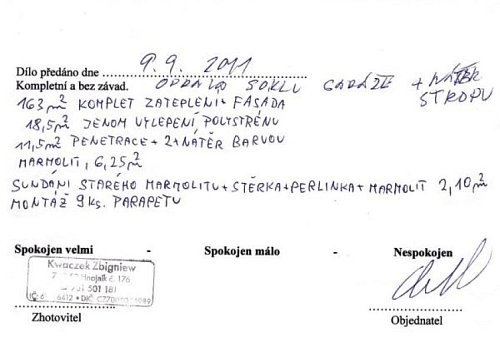 Dílo předáno dne 9.9. 2011
Kompletní a bez závad. OPRAVA SOKLU GARÁŽE + NÁTĚR
STROPU
163 m² KOMPLET ZATEPLENI + FASADA
18,5 m² JENOM VYLEPENÍ POLYSTRÉNU
11,5 m² PENETRACE + 2 + NÁTĚR BARVOU
MARMOLIT, 6,25 m²
SUNDÁNI STARÉHO MARMOLITU + STĚRKA + PERLINKA + MARMOLIT 2,10 m²
MONTÁŽ 9 ks. PARAPETU
Spokojen velmi - Spokojen málo - Nespokojen
Kwaczek Zbigniew
Hnojník č. 176
501 181
Zhotovitel
Objednatel